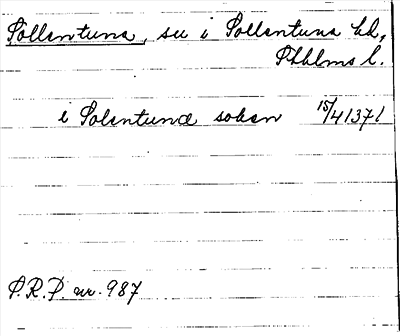 Sollentuna, sn i Sollentuna hd,
Sthlms l.
i Solentunæ sokn 15/4 1371
S.R.P. nr. 987